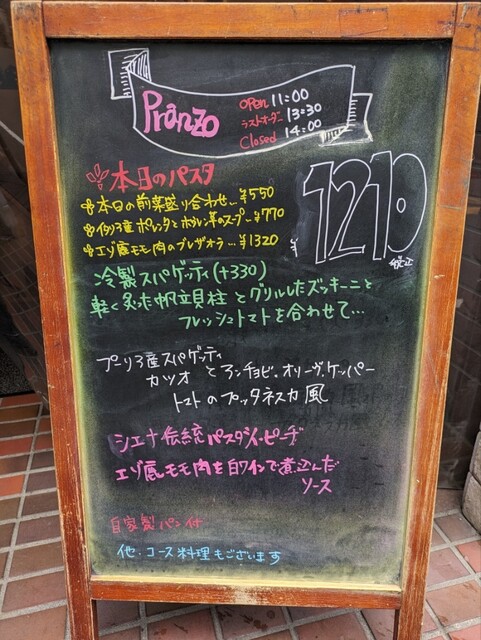 Pranzo
open 11:00
ラストオーダー 13:30
Closed 14:00
本日のパスタ
¥1210
税込
本日の前菜盛り合わせ…¥550
イタリア産ポレンタとポルチーニ茸のスープ…¥770
エゾ鹿モモ肉のブレザオラ…¥1320
冷製スパゲッティ(+330)
軽く炙った帆立貝柱とグリルしたズッキーニと
フレッシュトマトを合わせて…
プーリア産スパゲッティ
カツオとアンチョビ、オリーヴ、ケッパー
トマトのプッタネスカ風
シエナ伝統パスタ"ピーチ"
エゾ鹿モモ肉を白ワインで煮込んだ
ソース
自家製パン付
他、コース料理もございます